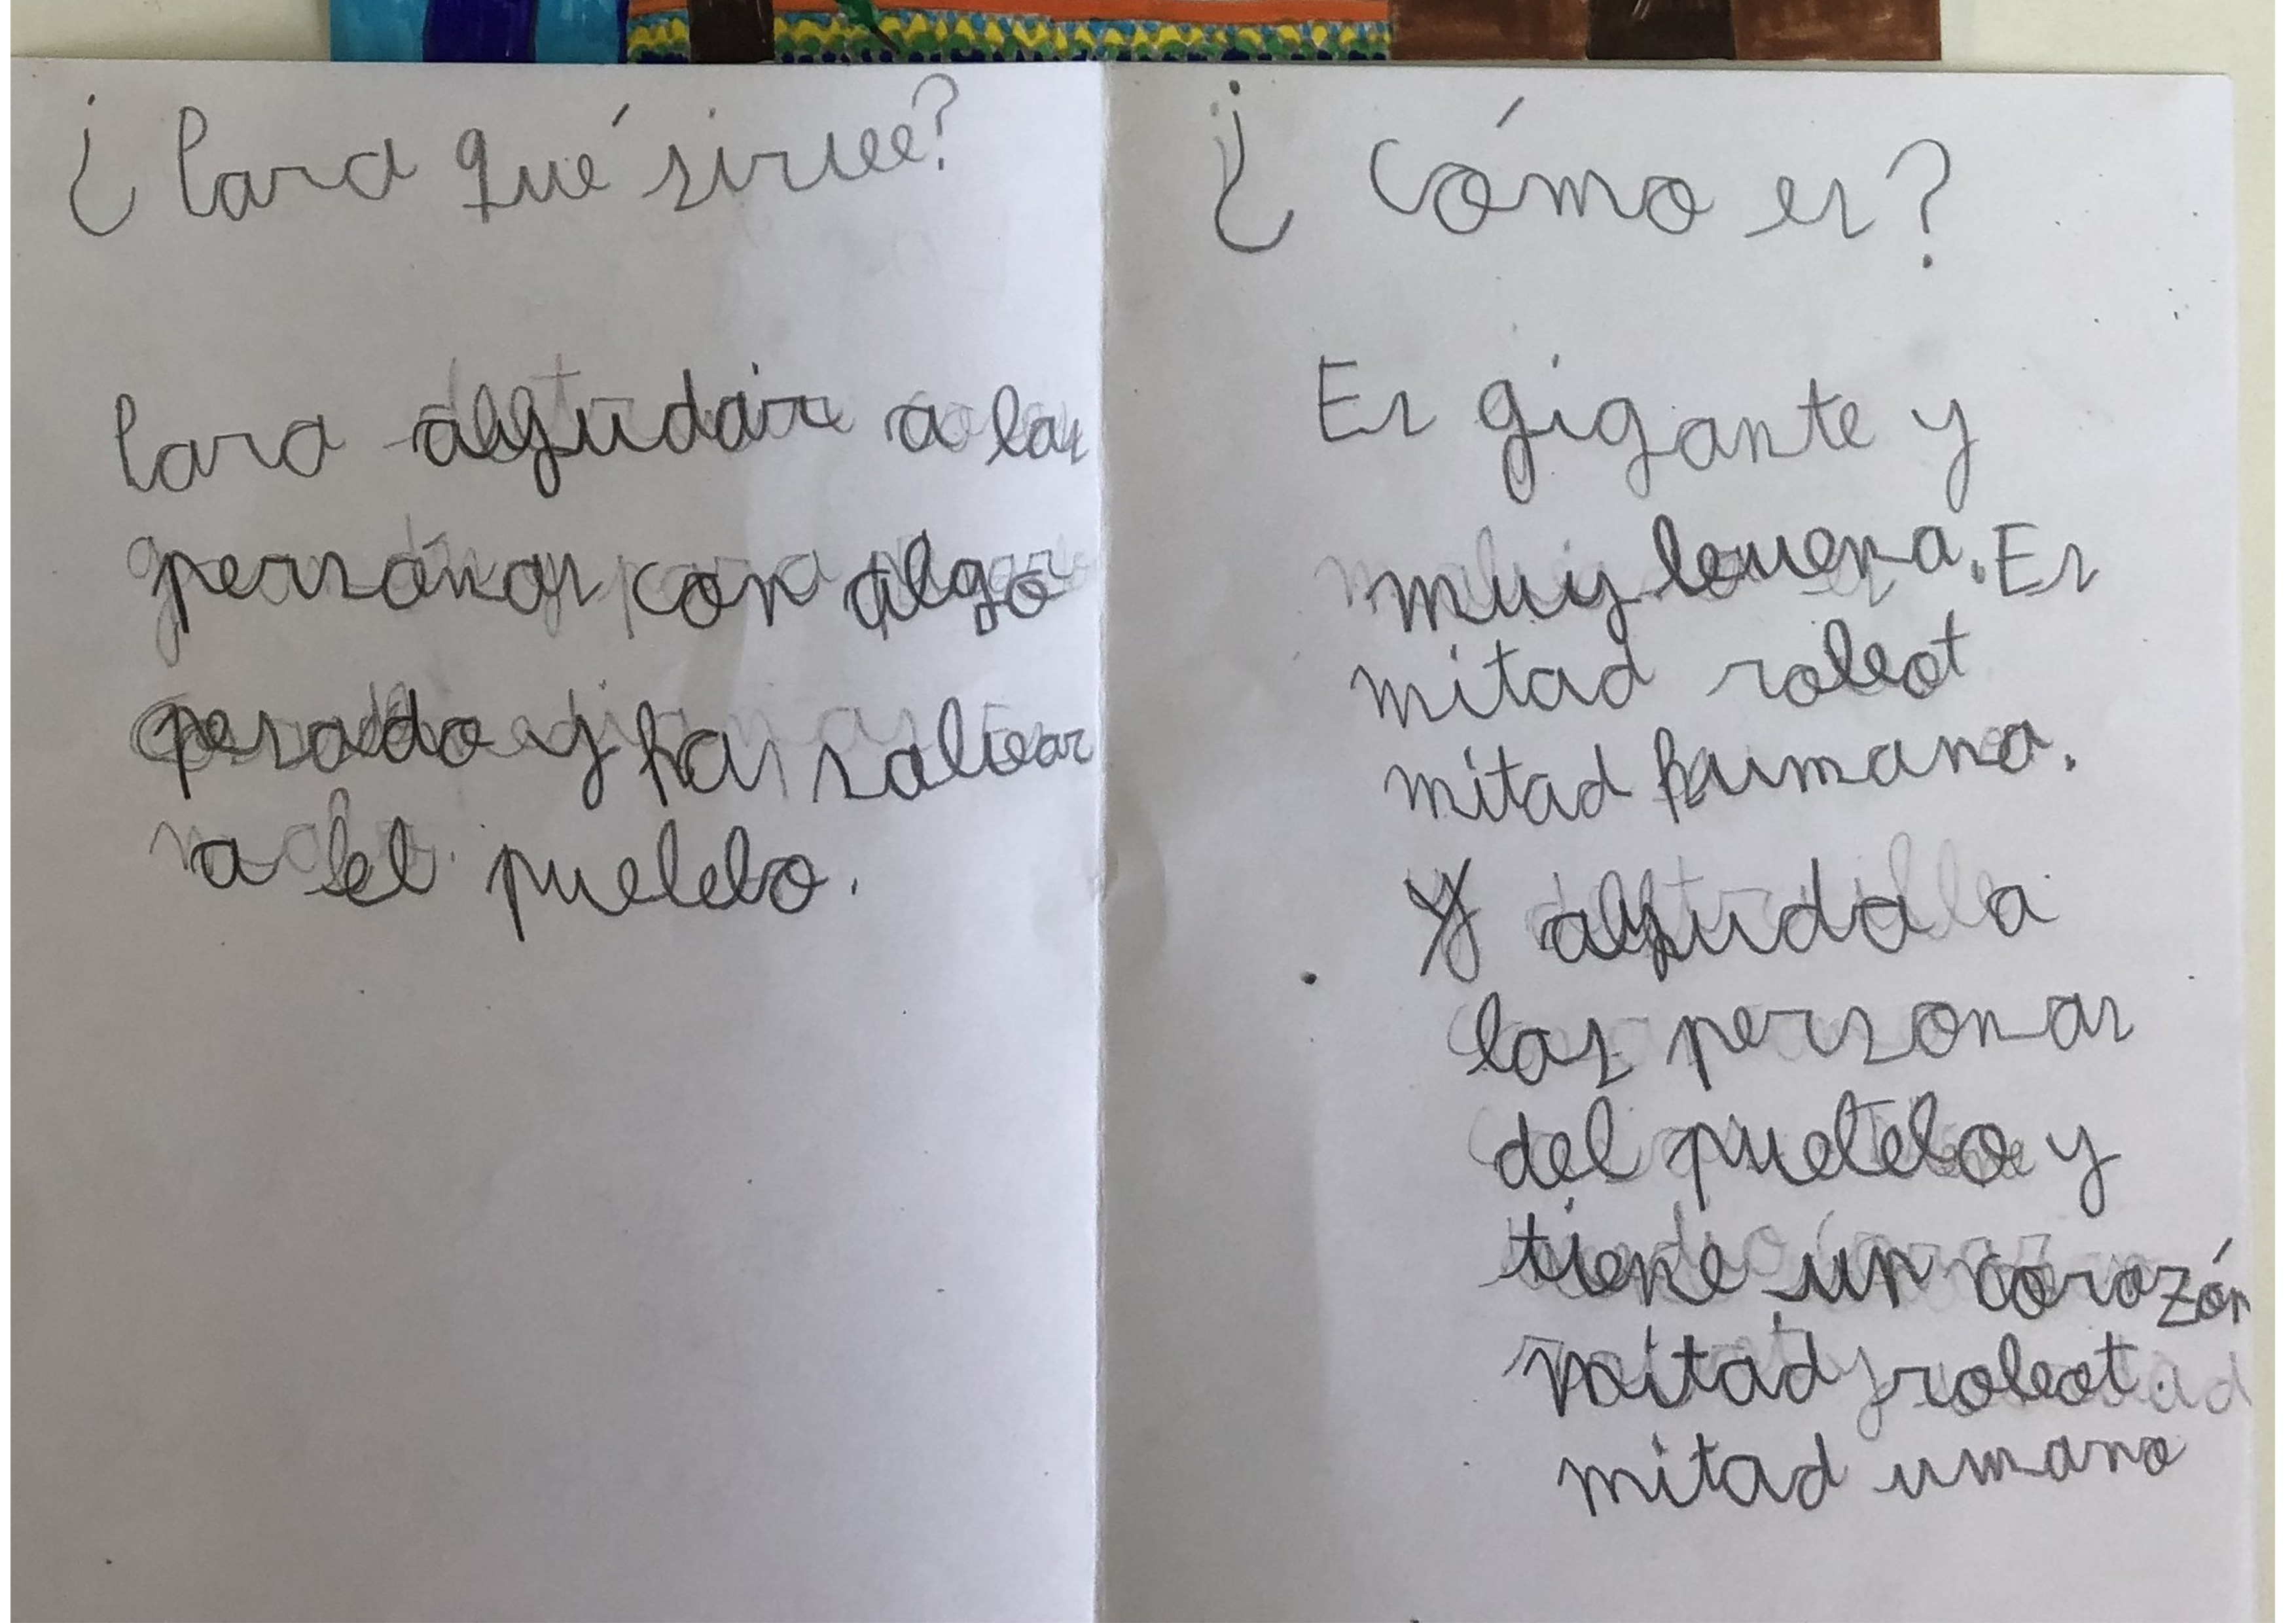 ¿Para qué sirve?
Para ayudar a las
personas con algo
pesado y ha salvar
a el pueblo.
¿Cómo es?
Es gigante y
muy buena. Es
mitad robot
mitad humana.
Y ayuda a
las personas
del pueblo y
tiene un corazón
mitad robot.
mitad umano